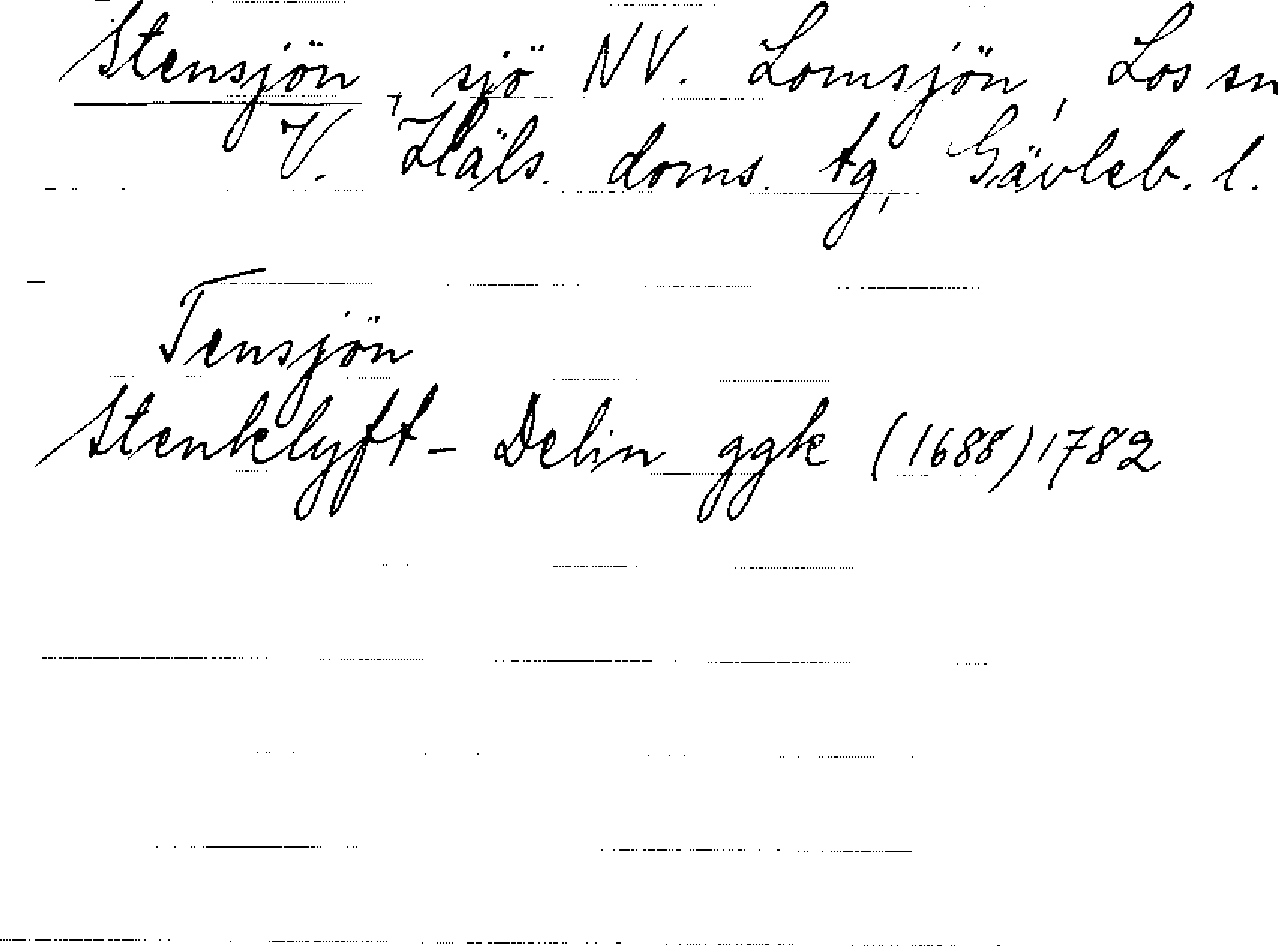 Stensjön, sjö NV. Lomsjön, Los sn
V. Häls. doms. tg, Gävleb. l.
Tensjön
Stenklyft- Delin ggk (1688)1782